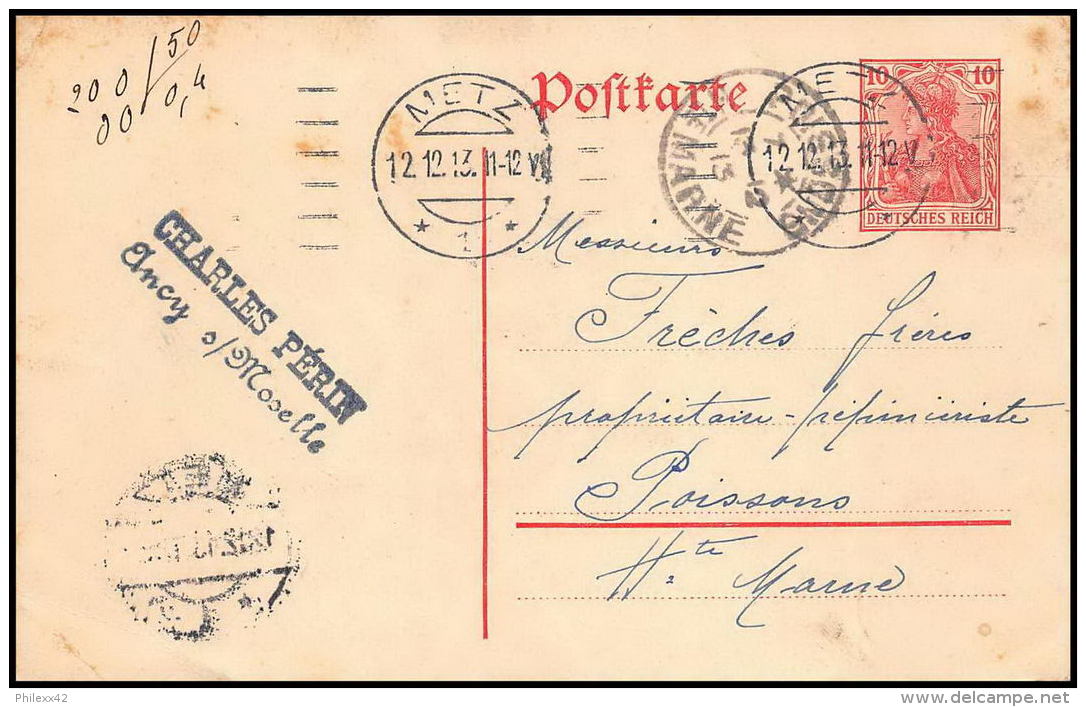 200 / 50
00 0,4
Postkarte
10 10
DEUTSCHES REICH
METZ
12.12.13. 11-12 V.
* 1 *
ME
12.12.13. 11-12 V.
MARNE
CHARLES PÉRIN
Ancy s/Moselle
Messieurs
Frèches frères
propriétaire-pépiniériste
Poissons
Hte Marne
Philexx42
delcampe.net